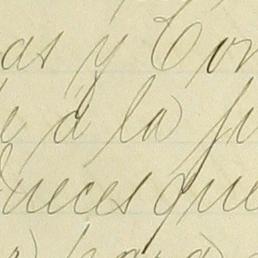 as y Con
e á la ju
ueces que